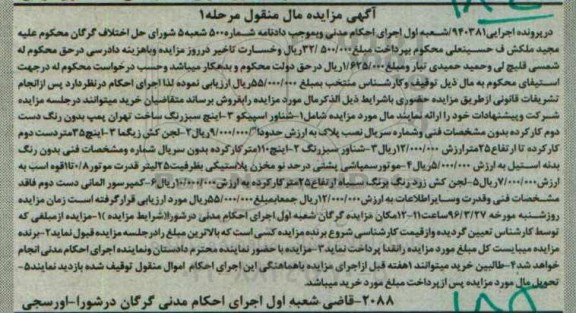 آگهی مزایده مال منقول مرحله۱
درپرونده اجرایی۹۴۰۳۸۱/شعبه اول اجرای احکام مدنی وبموجب دادنامه شماره۵۰۰ شعبه۵ شورای حل اختلاف گرگان محکوم علیه
مجید ملکش ف حسینعلی محکوم بپرداخت مبلغ۳۲/۵۰۰/۰۰۰ریال وخسارت تاخیر درروز مزایده وباهزینه دادرسی درحق محکوم له
شمسی قلیچ لی وحمید حمیدی تبار ومبلغ۱/۶۲۵/۰۰۰ریال درحق دولت محکوم و بدهکار میباشد وحسب درخواست محکوم له درجهت
استیفای محکوم به مال ذیل توقیف وکارشناس منتخب بمبلغ ۵۵/۰۰۰/۰۰۰ریال ارزیابی نموده لذا اجرای احکام درنظردارد پس ازانجام
تشریفات قانونی ازطریق مزایده حضوری باشرایط ذیل الذکرمال مورد مزایده رابفروش برساند متقاضیان خرید میتوانند درجلسه مزایده
شرکت وپیشنهادات خود را ارائه نمایند مال مورد مزایده شامل۱-شناور اسپیکو ۳-اینچ سبزرنگ ساخت تهران پمپ بدون رنگ دست
دوم کارکرده بدون مشخصات فنی وشماره سریال نصب پلاک به ارزش حدودا"۹/۰۰۰/۰۰۰ریال۲-لجن کش زیگما ۳-اینچ۳۵متردست دوم
کارکرده تا ارتفاع ۲۵مترارزش ۱۲/۰۰۰/۰۰۰ریال۳-شناور سبزرنگ ۲-اینچ۱۱۰مترکارکرده بدون سریال شماره ومشخصات فنی بدون رنگ
بدنه استیل به ارزش ۵/۰۰۰/۰۰۰ریال۴-موتورسمپاشی پشتی درحد نو مخزن پلاستیکی بظرفیت۲۵لیتر قدرت موتور۱۰/۸تا۱قوه اسب به
ارزش۷/۰۰۰/۰۰۰ریال۵-لجن کش زرد رنگ برنگ سیاه ارتفاع۲۵مترکارکرده به ارزش ۱۰/۰۰۰/۰۰۰ریال۶-کمپرسور آلمانی دست دوم فاقد
مشخصات فنی وقدرت وسایراطلاعات به ارزش۱۲/۰۰۰/۰۰۰ریال جمعابمبلغ۵۵/۰۰۰/۰۰۰ریال مورد ارزیابی قرارگرفته است زمان مزایده
روزشنبه مورخه ۹۶/۳/۲۷ساعت۱۱-۱۲مکان مزایده گرگان شعبه اول اجرای احکام مدنی درشورا(شرایط مزایده )۱-مزایده ازمبلغی که
توسط کارشناس تعیین گردیده وازقیمت کارشناسی شروع برنده مزایده کسی است که بالاترین مبلغ رادرجلسه مزایده قبول نماید۲-برنده
مزایده میبایست کل مبلغ مورد مزایده رانقدا پرداخت نماید۳-مزایده با حضور نماینده محترم دادستان ونماینده اجرای احکام مدنی انجام
خواهد شد۴-طالبین خرید میتوانند ۱هفته قبل ازاجرای مزایده باهماهنگی این اجرای احکام اموال منقول توقیف شده بازدید نمایند۵-
تحویل مال مورد مزایده پس ازپرداخت مبلغ مورد خرید میباشد
۲۰۸۸-قاضی شعبه اول اجرای احکام مدنی گرگان درشورا-اورسجی